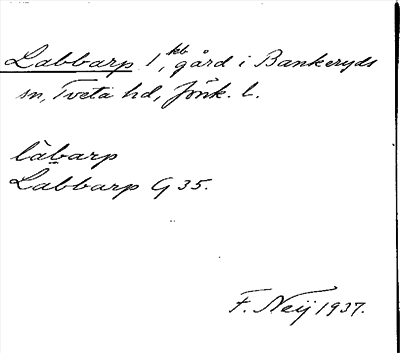 Labbarp 1, kb gård i Bankeryds
sn, Tveta hd, Jönk. L.
låbarp
Labbarp G 35.
F. Neij 1937.